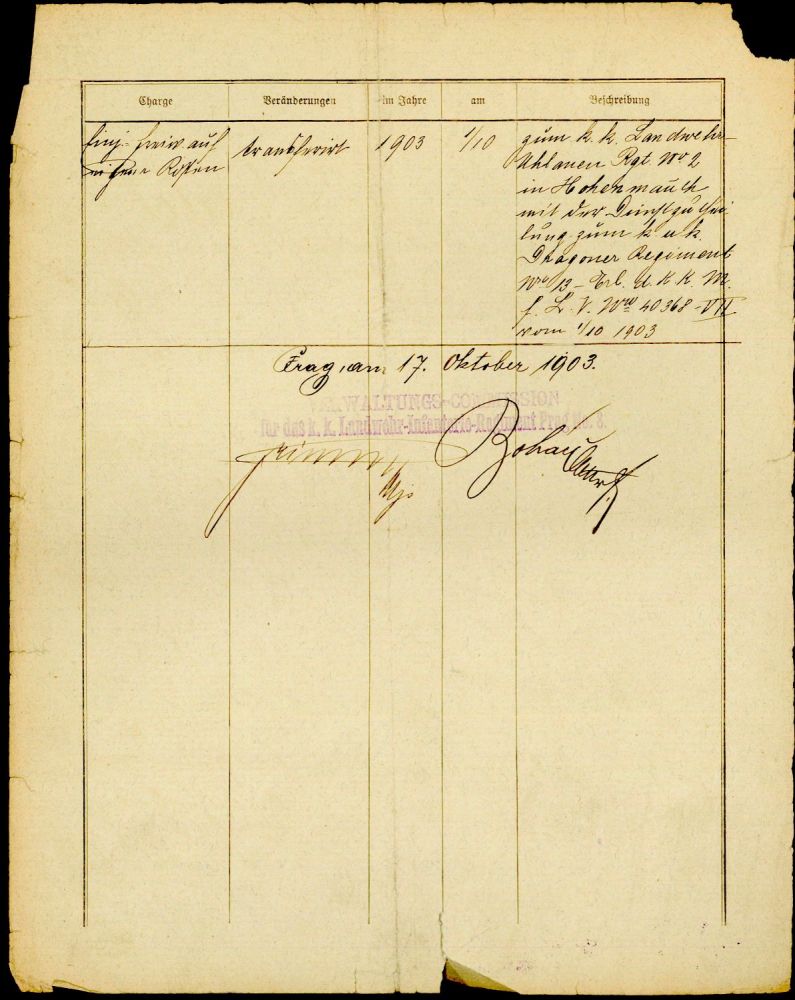 Charge Veränderungen im Jahre am Beschreibung
Einj. Freiw auf transferirt 1903 1/10 zum k. k. Landwehr-
eigene Kosten Uhlanen Rgt. Nro 2
in Hohenmauth
mit der Dienstzuthei-
lung zum k. u. k.
Dragoner Regiment
Nro 13 - Erl. d. k. k. M.
f. L. V. Nro 40368-VII
vom 1/10 1903
Prag, am 17. Oktober 1903.
VERWALTUNGS-COMMISSION
für das k. k. Landwehr-Infanterie-Regiment Prag No. 8.
Mjr